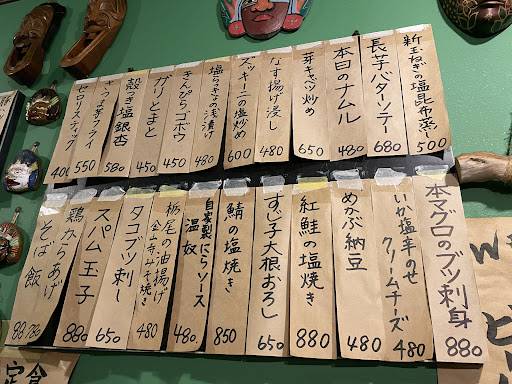 新玉ねぎの塩昆布蒸し 500
長芋バターソテー 680
本日のナムル 480
芽キャベツ炒め 650
なす揚げ浸し 480
ズッキーニの塩炒め 600
塩らっきょの浅漬け 480
きんぴらゴボウ 450
ガリとまと 450
殻つき塩銀杏 580
さつま芋フライ 550
セロリスティック 400
本マグロのブツ刺身 880
いか塩辛のせ
クリームチーズ 480
めかぶ納豆 480
紅鮭の塩焼き 880
すじ子大根おろし 650
鯖の塩焼き 850
自家製にらソース
温奴 480
栃尾の油揚げ
金山寺みそ焼き 480
タコブツ刺し 650
スパム玉子 880
鶏からあげ 780
そば飯 88
定食